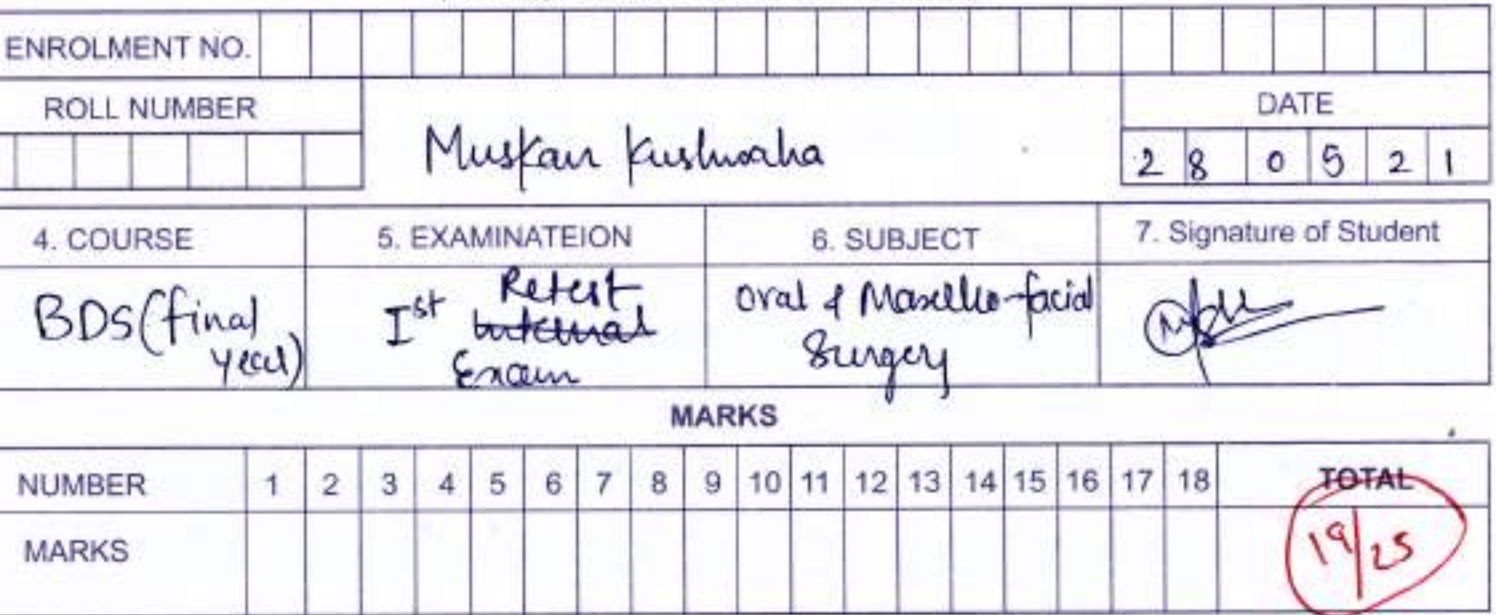 ENROLMENT NO.
ROLL NUMBER
Muskan Kushwaha
DATE
2 8 0 5 2 1
4. COURSE 5. EXAMINATEION 6. SUBJECT 7. Signature of Student
BDS (final year)
Ist Retest Internal Exam
Oral & Maxillo-facial Surgery
MARKS
NUMBER 1 2 3 4 5 6 7 8 9 10 11 12 13 14 15 16 17 18 TOTAL
MARKS 19/25